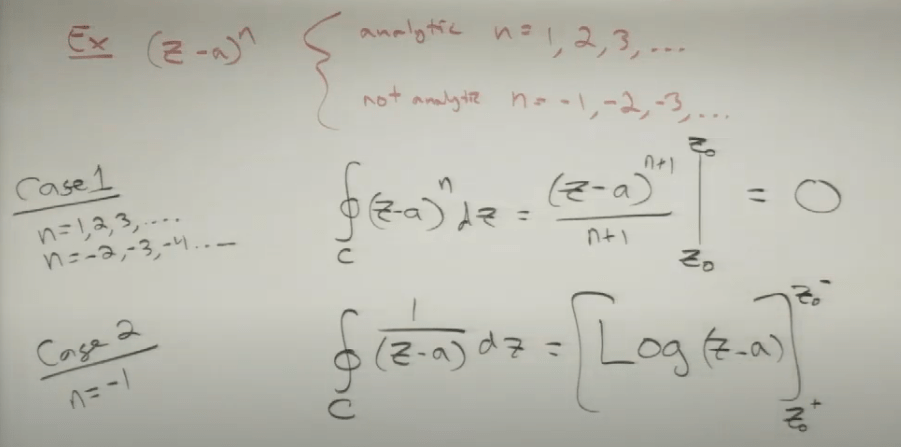 Ex (z-a)^n { analytic n = 1, 2, 3, ...
not analytic n = -1, -2, -3, ...
Case 1
n=1,2,3,....
n=-2,-3,-4....
∮_C (z-a)^n dz = (z-a)^{n+1}/(n+1) |_{z_0}^{z_0} = 0
Case 2
n=-1
∮_C 1/(z-a) dz = [Log(z-a)]_{z_0^+}^{z_0^-}